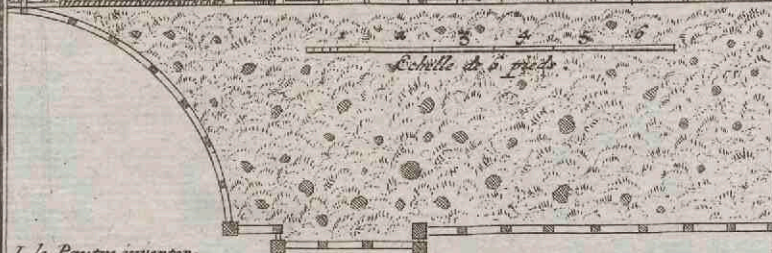 1 2 3 4 5 6
Echelle de 6 pieds.
J. le Pautre inventor